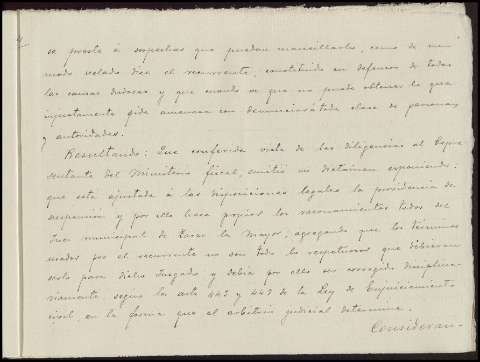 se presta á sospechas que puedan mancillarlo, como de un
modo velado dice el recurrente, constituido en defensor de todas
las causas dudosas y que cuando ve que no puede obtener lo que
injustamente pide amenaza con denunciar á toda clase de personas
y autoridades.
Resultando: Que conferida vista de las diligencias al Repre
sentante del Ministerio fiscal, emitió su dictamen exponiendo:
que está ajustada á las disposiciones legales la providencia de
suspensión y por ello hace propios los razonamientos todos del
Juez municipal de la Mayor; agregando que los términos
usados por el recurrente no son todo lo respetuosos que debieran
serlo para dicho Juzgado y debía por ello ser corregido disciplina
riamente, segun los arts 443 y 449 de la Ley de Enjuiciamiento
civil, en la forma que el arbitrio judicial determine.
Consideran-